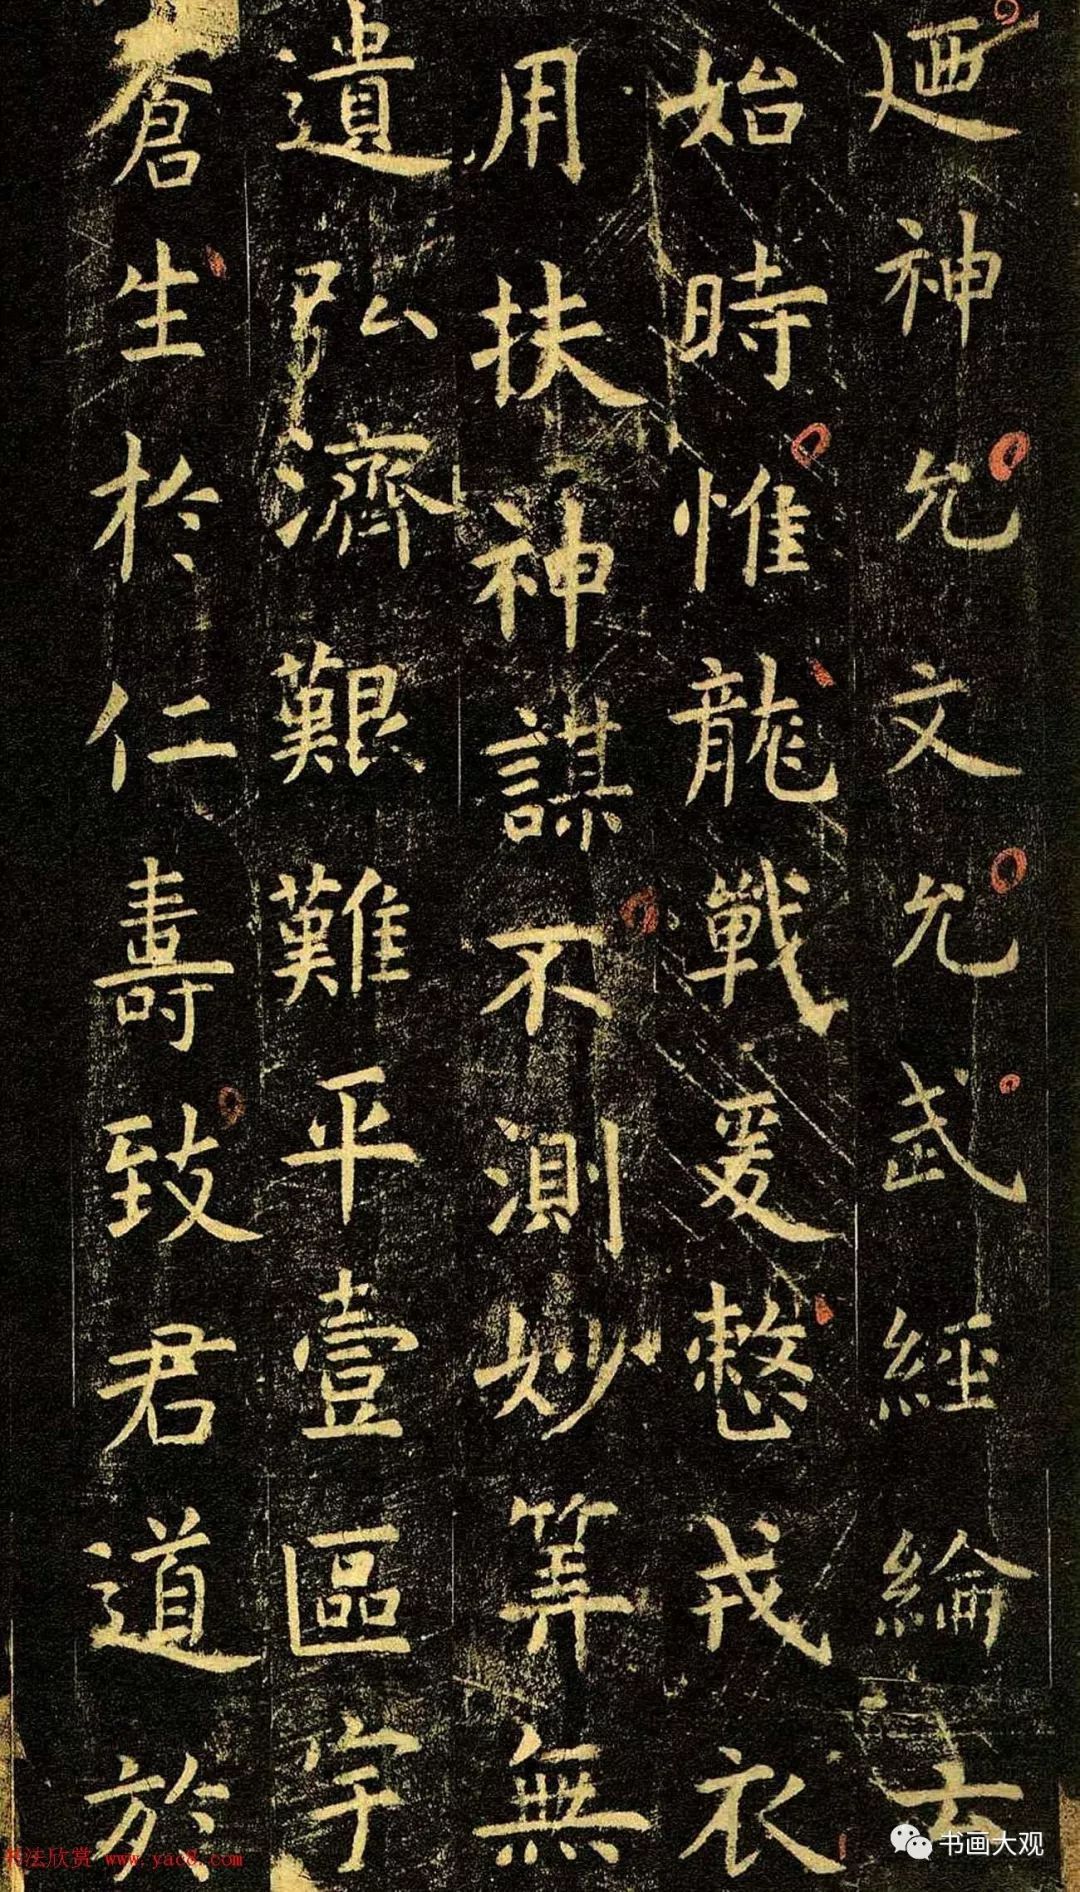 迺神允文允武經綸
始時惟龍戰爰整戎衣
用扶神謀不測妙筭無
遺弘濟艱難平壹區宇
蒼生於仁壽致君道於
书法欣赏 www.yacd.com
书画大观